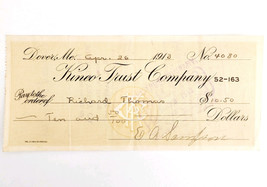 Dover, Me. Apr. 26 1913 No. 4020
Kineo Trust Company 52-163
Pay to the order of Richard Thomas $10.50
Ten and Dollars